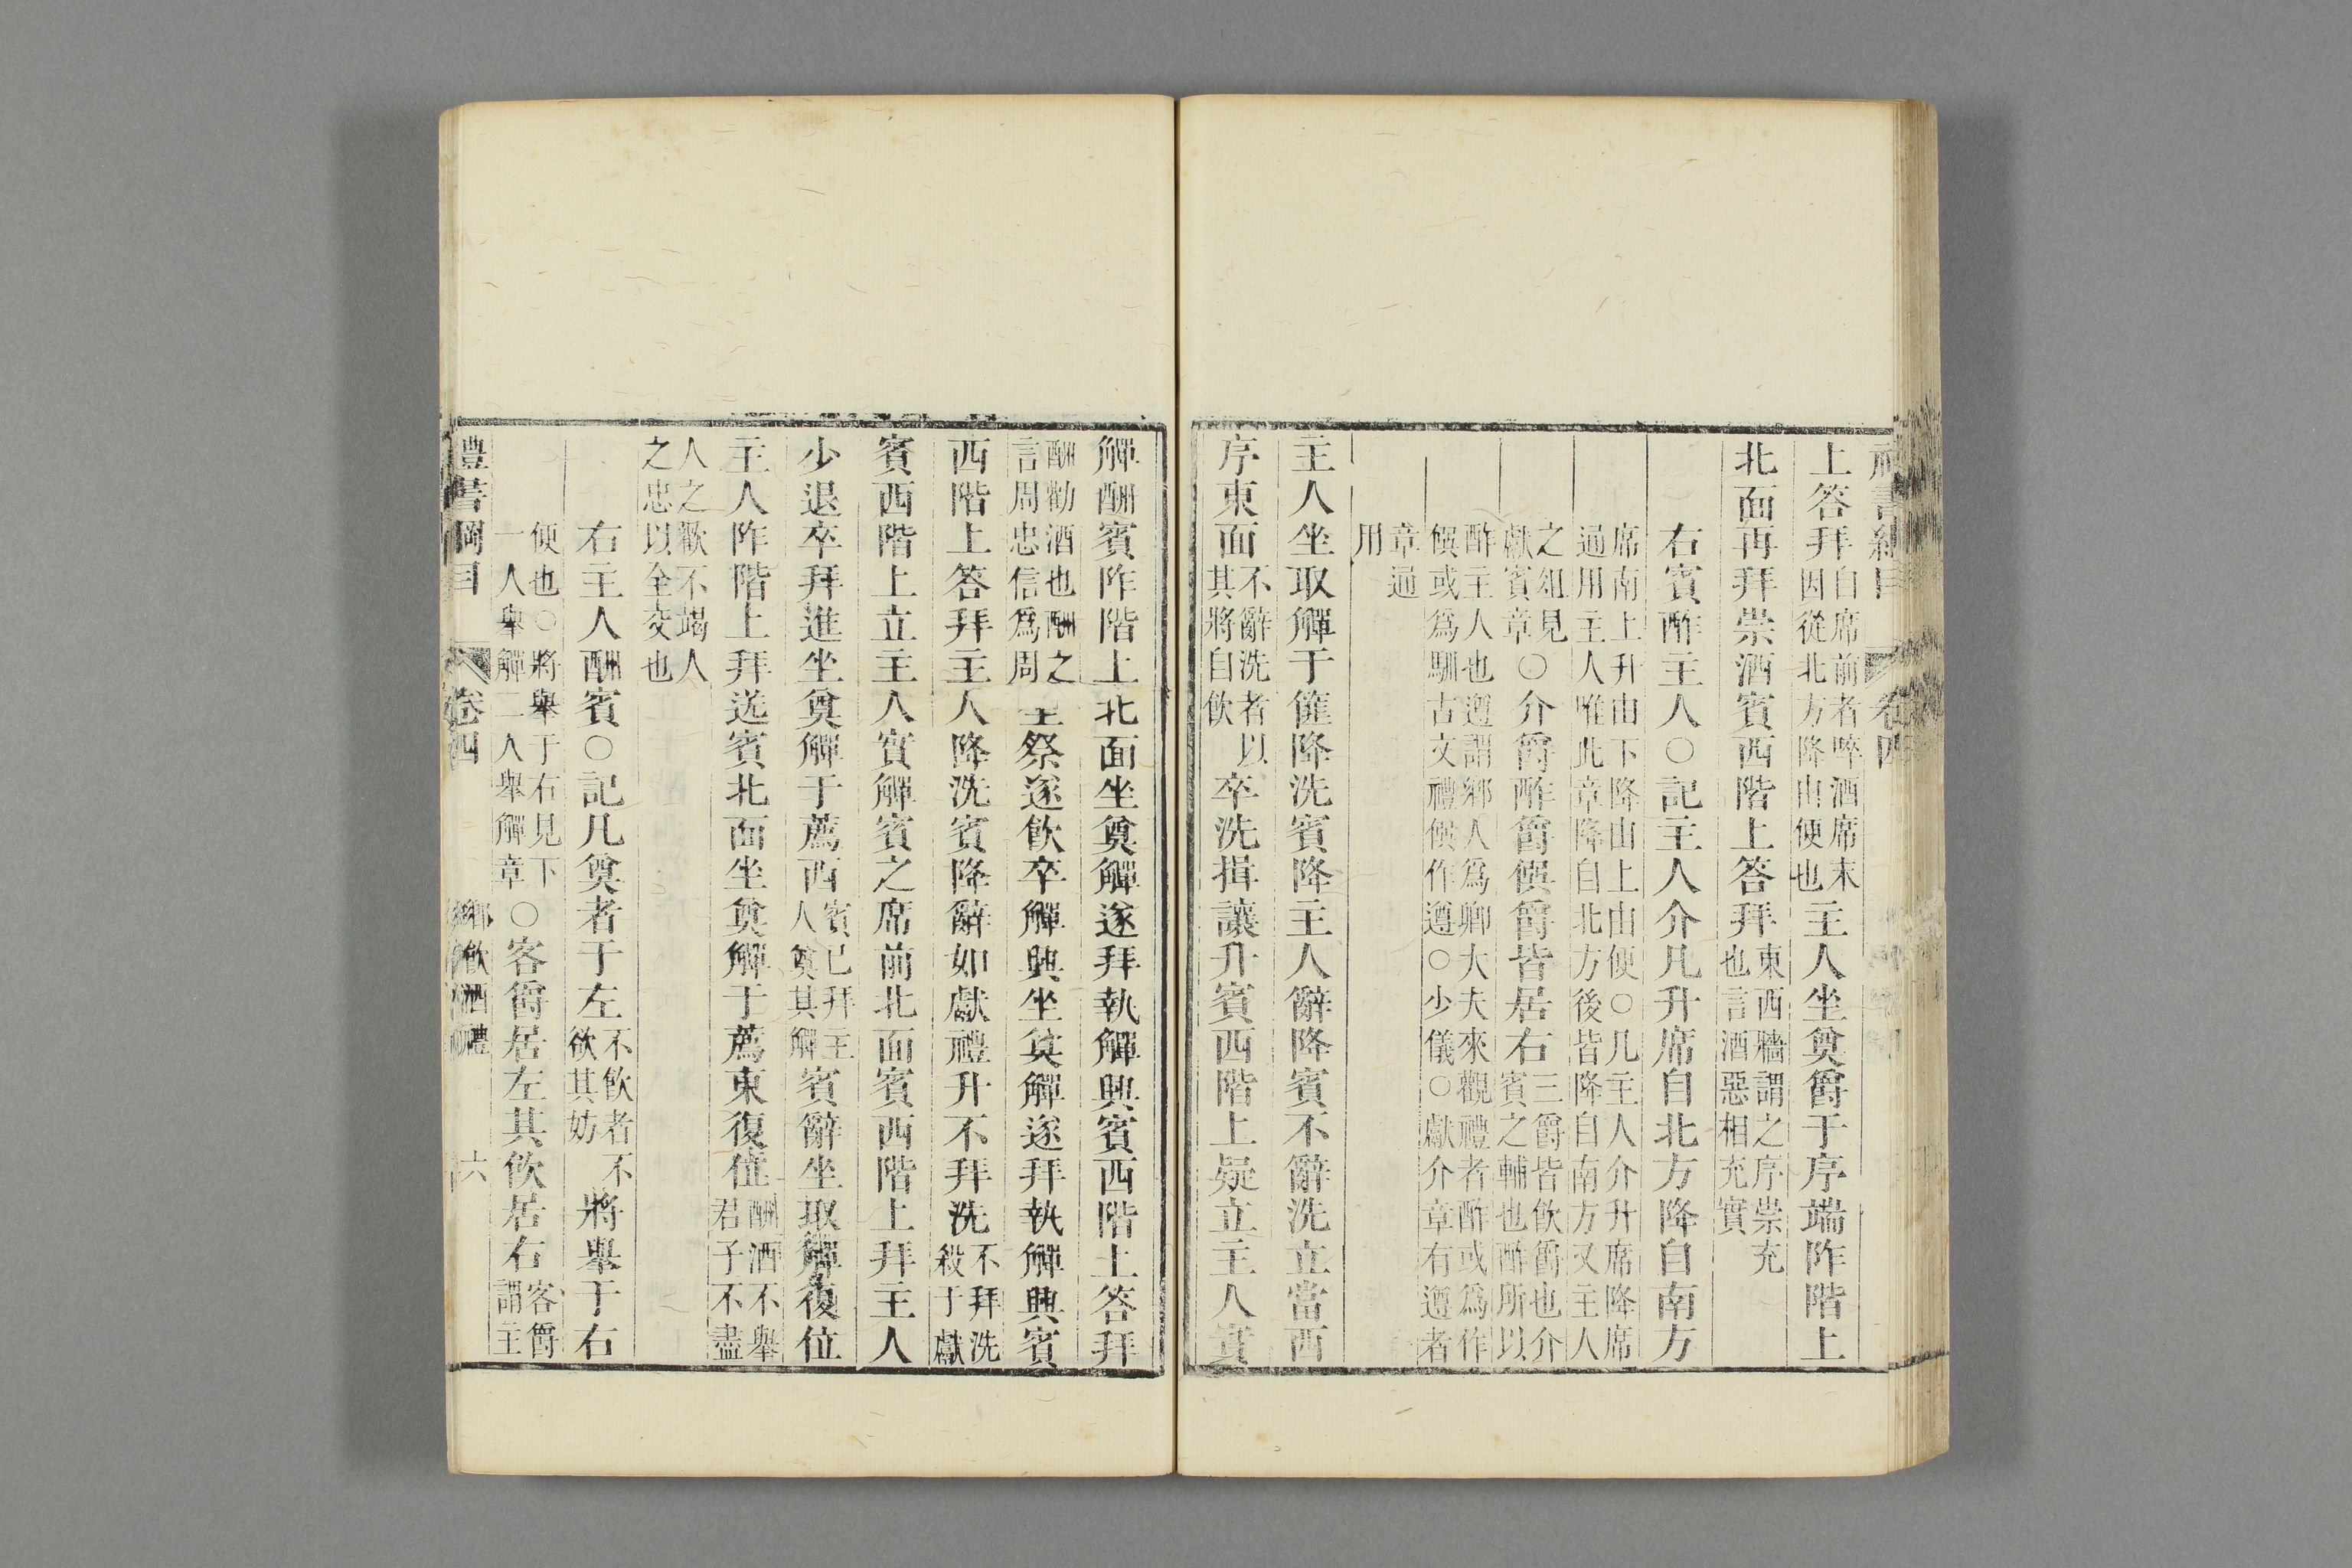 禮書綱目 卷四
上答拜自席前者啐酒席末因從北方降由便也主人坐奠爵于序端阼階上
北面再拜崇酒賓西階上答拜東西牆謂之序崇充也言酒惡相充實
右賓酢主人○記主人介凡升席自北方降自南方
席南上升由下降由上由便○凡主人介升席降席通用主人唯此章降自北方後皆降自南方又主人
之俎見獻賓章○介爵酢爵僎爵皆居右三爵皆飲爵也介賓之輔也酢所以
酢主人也遵謂鄉人爲卿大夫來觀禮者酢或爲作僎或爲馴古文禮僎作遵○少儀○獻介章有遵者
章通用
主人坐取觶于篚降洗賓降主人辭降賓不辭洗立當西
序東面不辭洗者以其將自飲卒洗揖讓升賓西階上疑立主人實
觶酬賓阼階上北面坐奠觶遂拜執觶興賓西階上答拜
酬勸酒也酬之言周忠信爲周坐祭遂飲卒觶興坐奠觶遂拜執觶興賓
西階上答拜主人降洗賓降辭如獻禮升不拜洗不拜洗殺于獻
賓西階上立主人實觶賓之席前北面賓西階上拜主人
少退卒拜進坐奠觶于薦西賓已拜主人奠其觶賓辭坐取觶復位
主人阼階上拜送賓北面坐奠觶于薦東復位酬酒不舉君子不盡
人之歡不竭人之忠以全交也
右主人酬賓○記凡奠者于左不飲者不欲其妨將舉于右
便也○將舉于右見下一人舉觶二人舉觶章○客爵居左其飲居右客爵謂主
禮書綱目 卷四 鄉飲酒禮 六